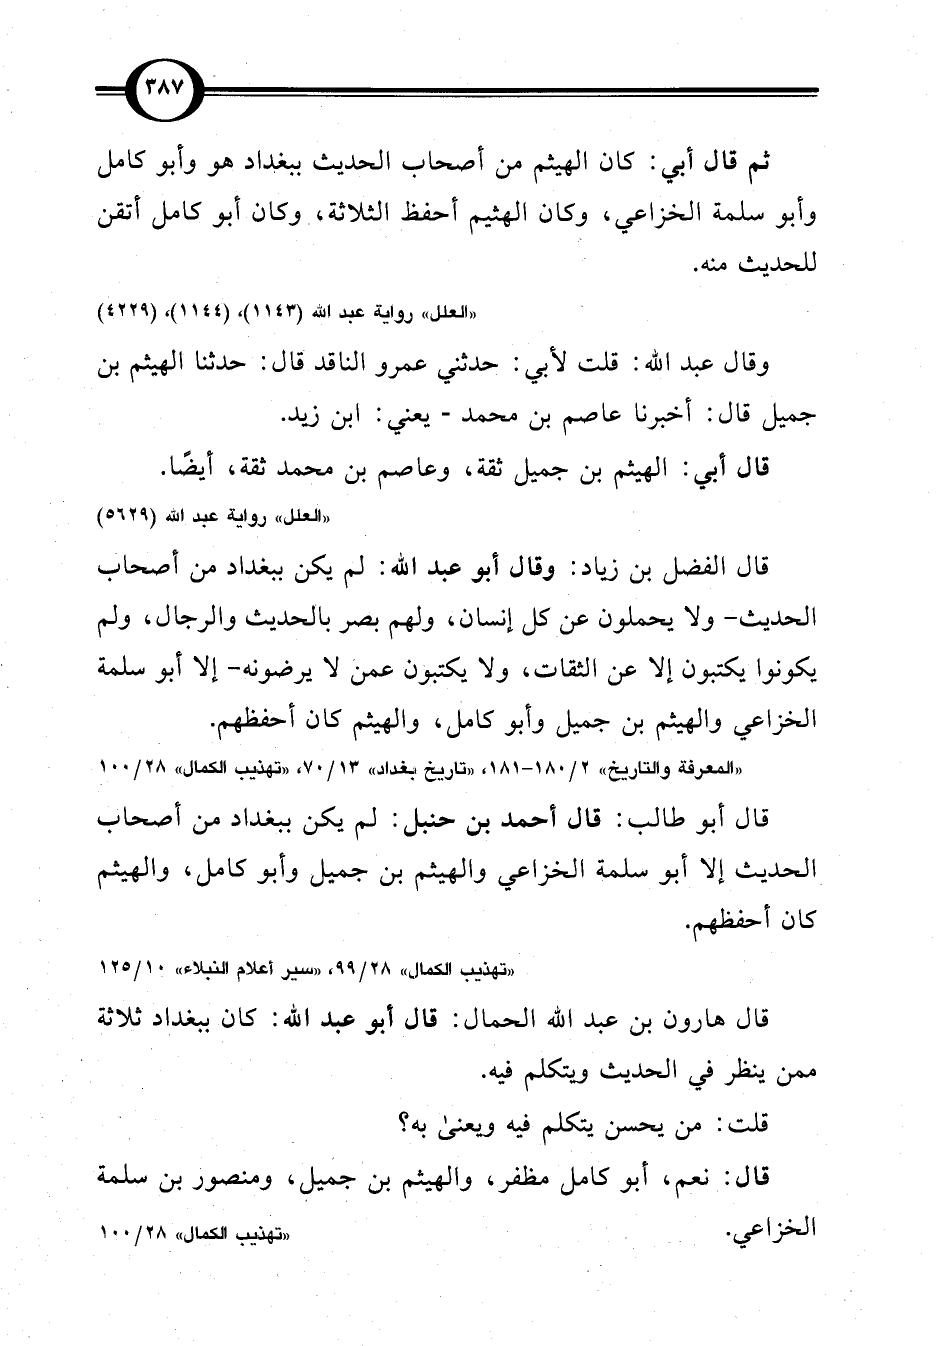 ٣٨٧
ثم قال أبي: كان الهيثم من أصحاب الحديث ببغداد هو وأبو كامل
وأبو سلمة الخزاعي، وكان الهثيم أحفظ الثلاثة، وكان أبو كامل أتقن
للحديث منه.
«العلل» رواية عبد الله (١١٤٣)، (١١٤٤)، (٤٢٢٩)
وقال عبد الله: قلت لأبي: حدثني عمرو الناقد قال: حدثنا الهيثم بن
جميل قال: أخبرنا عاصم بن محمد - يعني: ابن زيد.
قال أبي: الهيثم بن جميل ثقة، وعاصم بن محمد ثقة، أيضًا.
«العلل» رواية عبد الله (٥٦٢٩)
قال الفضل بن زياد: وقال أبو عبد الله: لم يكن ببغداد من أصحاب
الحديث- ولا يحملون عن كل إنسان، ولهم بصر بالحديث والرجال، ولم
يكونوا يكتبون إلا عن الثقات، ولا يكتبون عمن لا يرضونه- إلا أبو سلمة
الخزاعي والهيثم بن جميل وأبو كامل، والهيثم كان أحفظهم.
«المعرفة والتاريخ» ٢/ ١٨٠-١٨١، «تاريخ بغداد» ١٣/ ٧٠، «تهذيب الكمال» ٢٨/ ١٠٠
قال أبو طالب: قال أحمد بن حنبل: لم يكن ببغداد من أصحاب
الحديث إلا أبو سلمة الخزاعي والهيثم بن جميل وأبو كامل، والهيثم
كان أحفظهم.
«تهذيب الكمال» ٢٨/ ٩٩، «سير أعلام النبلاء» ١٠/ ١٢٥
قال هارون بن عبد الله الحمال: قال أبو عبد الله: كان ببغداد ثلاثة
ممن ينظر في الحديث ويتكلم فيه.
قلت: من يحسن يتكلم فيه ويعنىٰ به؟
قال: نعم، أبو كامل مظفر، والهيثم بن جميل، ومنصور بن سلمة
الخزاعي. «تهذيب الكمال» ٢٨/ ١٠٠